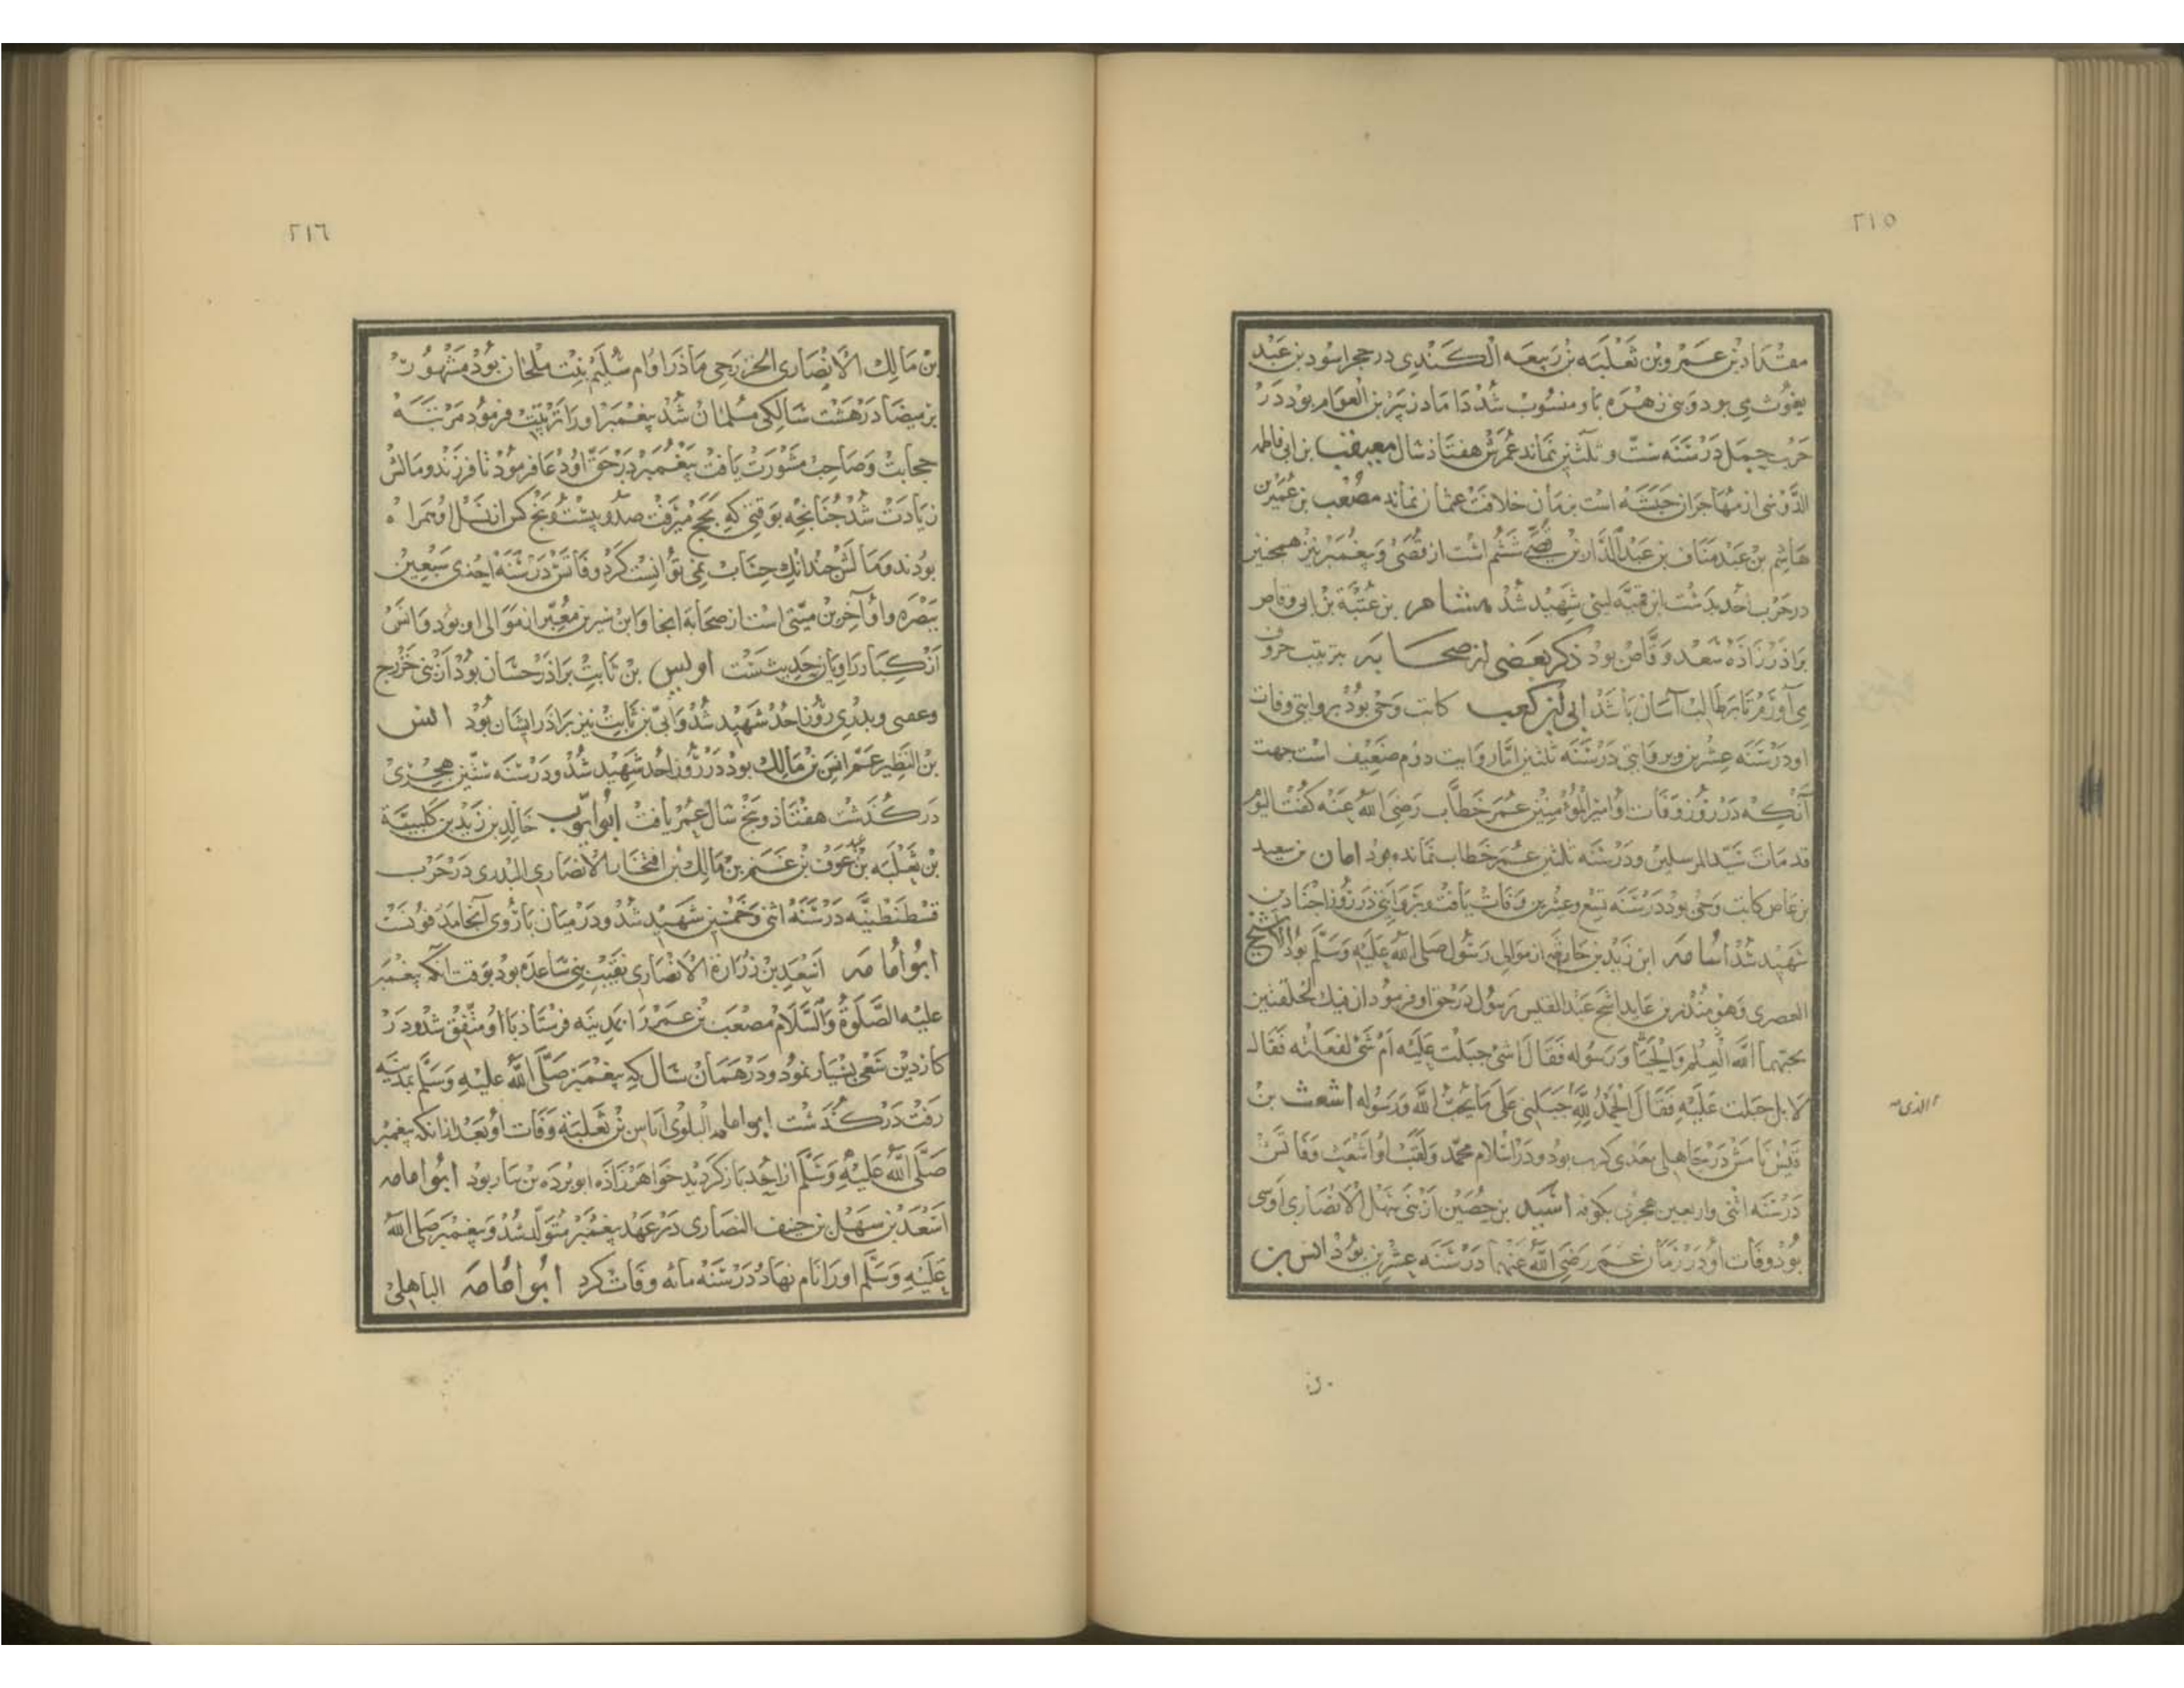 ٢١٥
مقداد بن عمرو بن ثعلبه بن ربیعه الکندی در حجر اسود بن عبد
یغوث می بود و بنی زهره باو منسوب شد داماد زبیر بن العوام بود در
حرب جمل در سنه ست و ثلثین نماند عمرش هفتاد سال معیقب بن ابی فاطمه
الدوسی از مهاجران حبشه است بزمان خلافت عثمان نماند مصعب بن عمیر بن
هاشم بن عبد مناف بن عبد الدار بن قصی ششم است از قصی و پیغمبر نیز همچنین
در حرب احد بدست ابن قمیه لیثی شهید شد هشام بن عتبة بن ابی وقاص
براذر زاذه سعد وقاص بود ذکر بعضی از صحابه بترتیب حروف
می آورم تا بر طالب آسان باشد ابی بن کعب کاتب وحی بود بروایتی وفات
او در سنه عشرین و بروایتی در سنه ثلثین اما روایت دوم ضعیف است جهت
آنکه در روز وفات او امیر المؤمنین عمر خطاب رضی الله عنه کفت الیوم
قد مات سید المرسلین و در سنه ثلثین عمر خطاب نمانده بود امان بن سعید
بن عاص کاتب وحی بود در سنه تسع و عشرین وفات یافت و بروایتی در روز اجنادین
شهید شد اسامه ابن زید بن حارثه از موالی رسول صلی الله علیه وسلم بود الاشج
العصری وهو منذر بن عاید اشج عبد القیس رسول در حق او فرمود ان فیک لخلقتین
یحبهما الله العلم والحیا ورسوله فقال اشی جبلت علیه ام شی لفعلته فقال
لا بل جبلت علیه فقال الحمد لله جبلنی علی ما یحب الله ورسوله اشعث بن
الذی
قیس نامش در جاهلی معدی کرب بود و در اسلام محمد ولقب او اشعث وفاتش
در سنه اثنی واربعین هجری بکوفه اسید بن حصین از بنی نهل الانصاری اوسی
بود وفات او در زمان عمر رضی الله عنهما در سنه عشرین بود انس بن
٢١٦
بن مالک الانصاری الخزرجی ماذر او ام سلیم بنت ملحان بود مشهور
بن بیضا در هشت سالکی مسلمان شد پیغمبر او را تربیت فرمود مرتبه
حجابت وصاحب مشورت یافت پیغمبر در حق او دعا فرمود تا فرزند و مالش
زیادت شد چنانچه بوقتی که بحج میرفت صد و بیست و پنج کس از نسل او همراه
بودند و مالش چندانک حساب نمی توانست کرد وفاتش در سنه احدی سبعین
ببصره و او آخرین میتی است از صحابه انجا و ابن سیرین معبر از موالی او بود و انس
از کبار راویان حدیثست اوس بن ثابت براذر حسان بود از بنی خزرج
وعقبی و بدری روز احد شهید شد و ابی بن ثابت نیز براذر ایشان بود انس
بن النظیر عم انس بن مالک بود در روز احد شهید شد و در سنه ستین هجری
در کذشت هفتاذ و پنج سال عمر یافت ابو ایوب خالد بن زید بن کلیبة
بن ثعلبه بن عبد عوف بن غنم بن مالک بن افتخار الانصاری البدری در حرب
قسطنطنیه در سنه اثنی وخمسین شهید شد و در میان باروی آنجا مدفونست
ابو امامه اسعد بن زرارة الانصاری نقیب بنی ساعده بود بوقت انکه پیغمبر
علیه الصلوة والسلام مصعب بن عمر را بمدینه فرستاذ با او متفق شد و در
کار دین سعی بسیار نمود و در همان سال که پیغمبر صلی الله علیه وسلم بمدینه
رفت در کذشت ابو امامه البلوی ایاس بن ثعلبة وفات او بعد از انکه پیغمبر
صلی الله علیه وسلم از احد باز کردید خواهر زاذه ابو برده بن نیار بود ابو امامه
اسعد بن سهل بن حنیف النصاری در عهد پیغمبر متولد شد و پیغمبر صلی الله
علیه وسلم او را نام نهاد در سنه مائه وفات کرد ابو امامه الباهلی